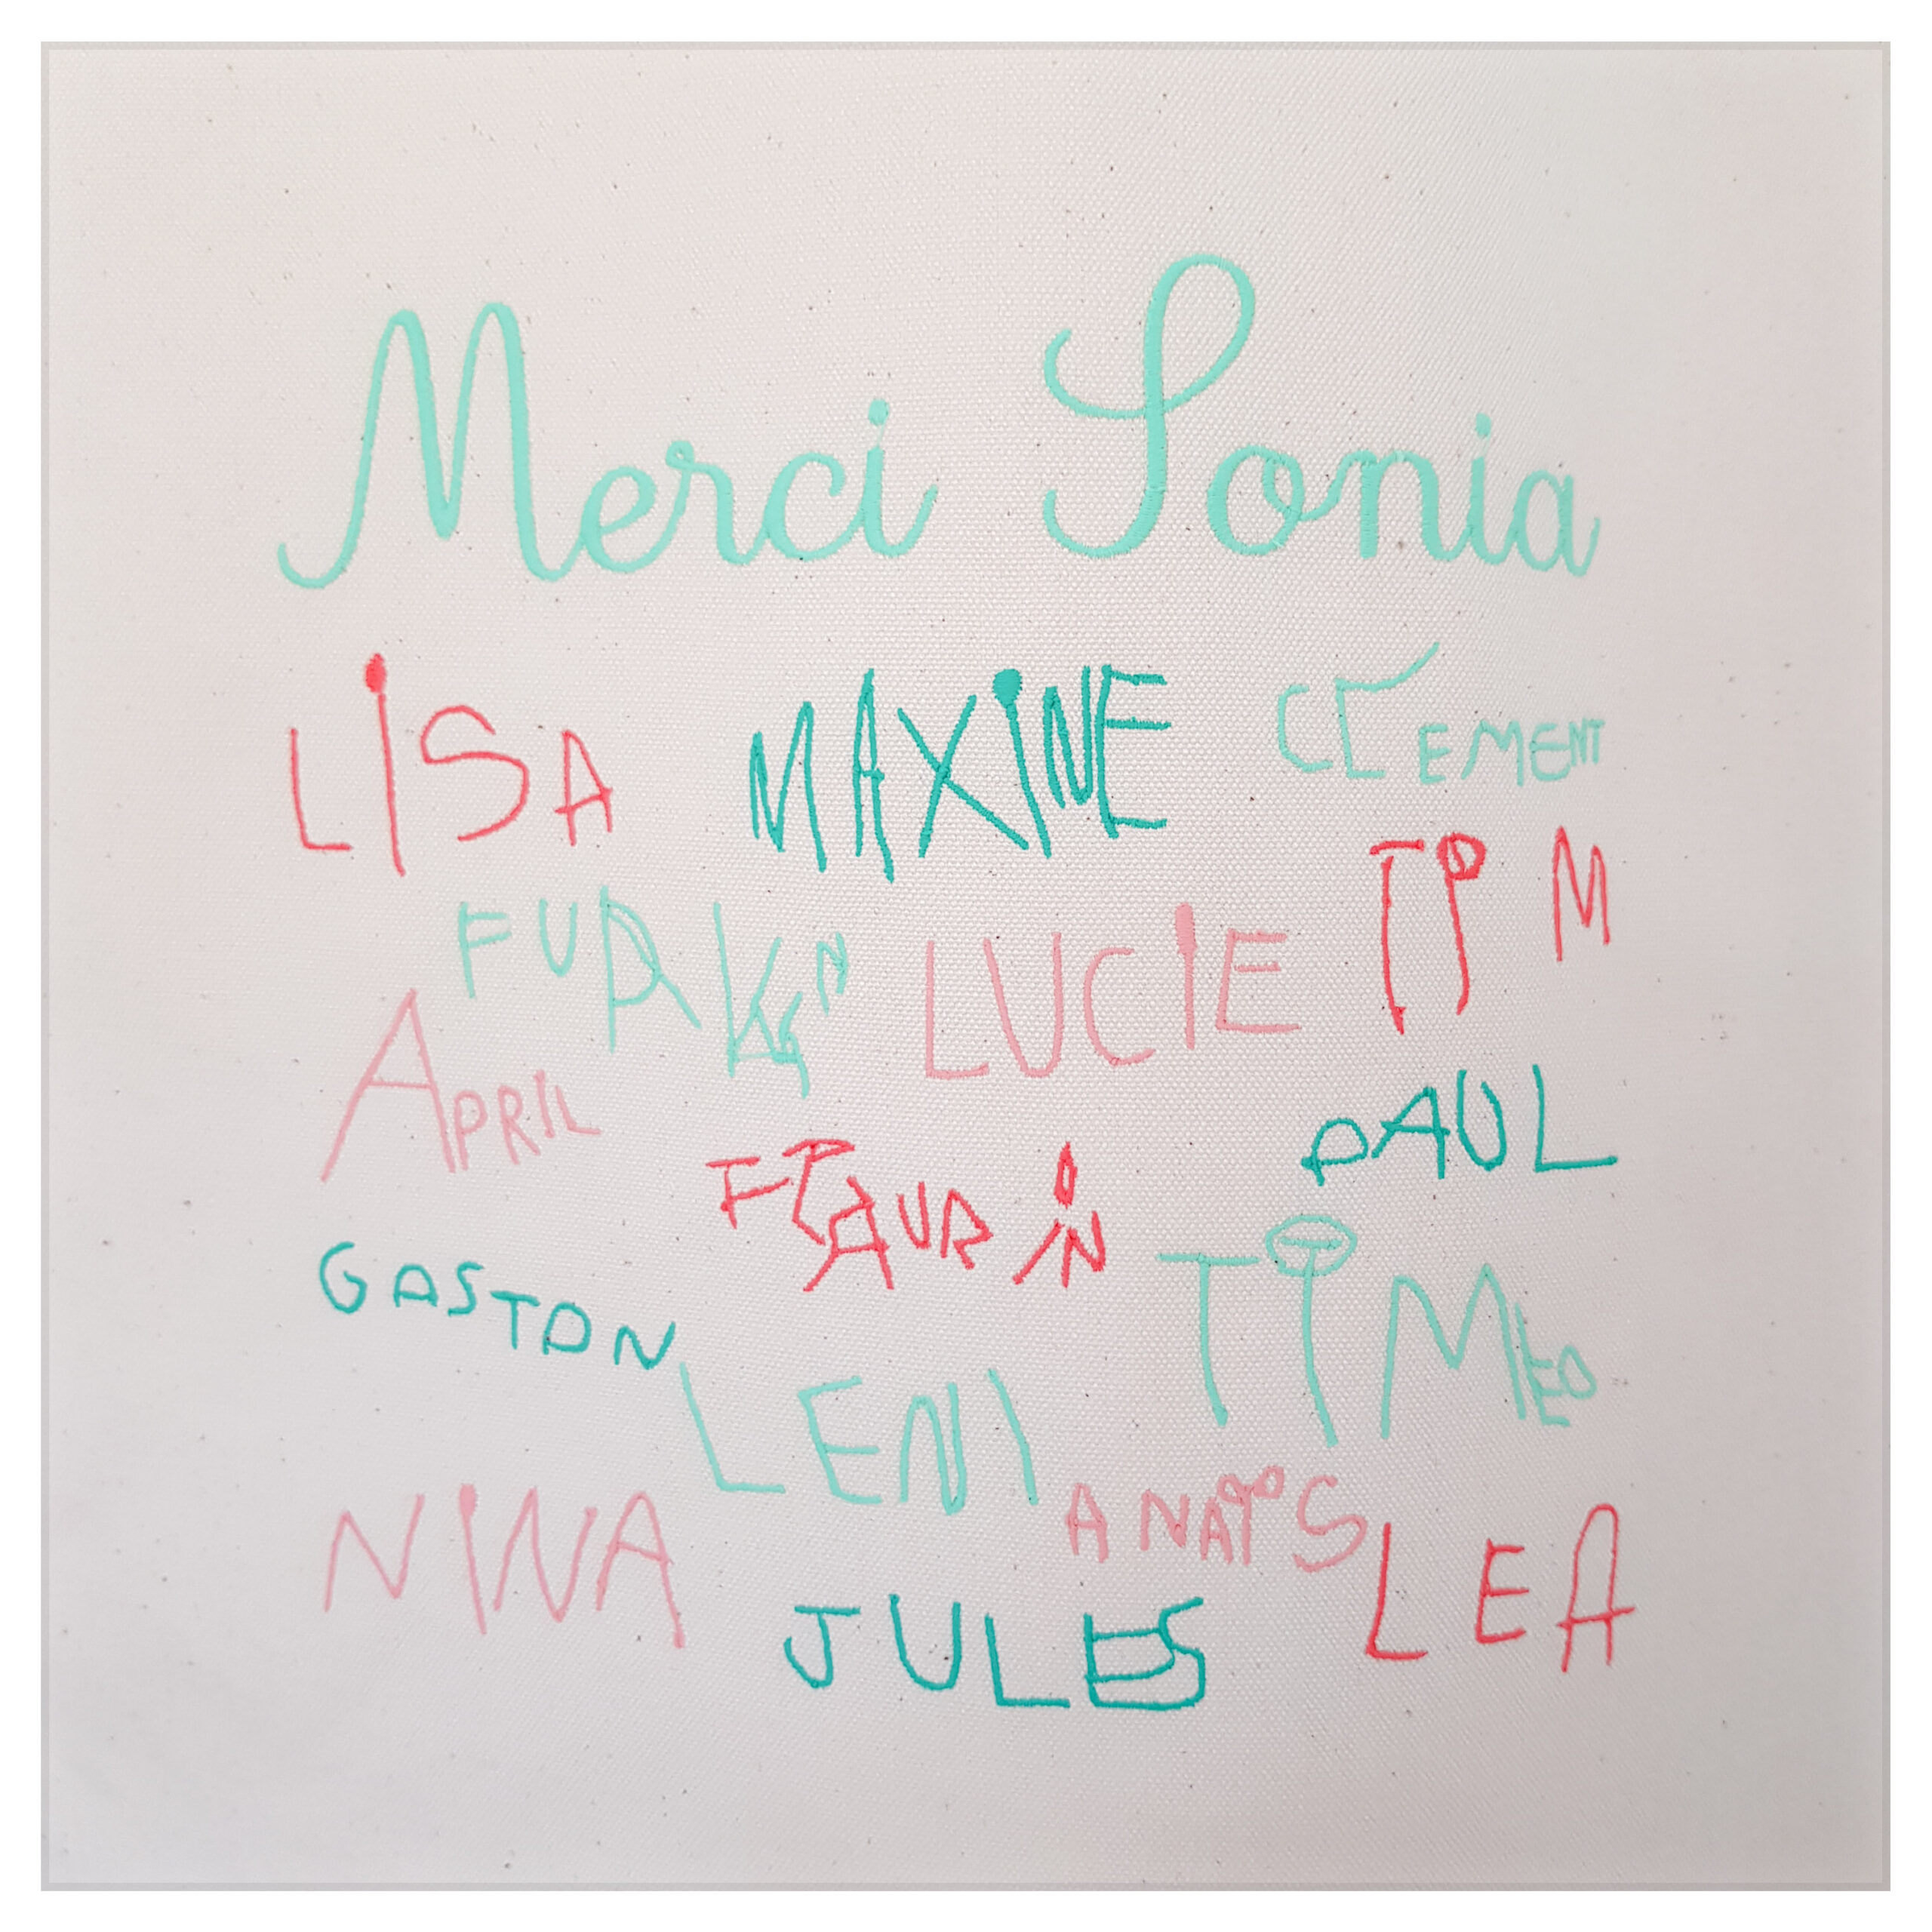 Merci Sonia
LISA MAXINE CLEMENT
FURKAN LUCIE TIM
APRIL PAUL
FLAURIN
GASTON TIMEO
LENI
NINA ANAÏS LEA
JULES